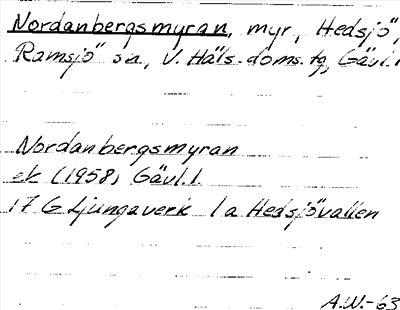 Nordanbergsmyran, myr, Hedsjö,
Ramsjö sn, V. Häls. doms. tg, Gävl.l
Nordanbergsmyran
ek (1958) Gävl.l.
17 G Ljungaverk 1a Hedsjövallen
A.W.-63